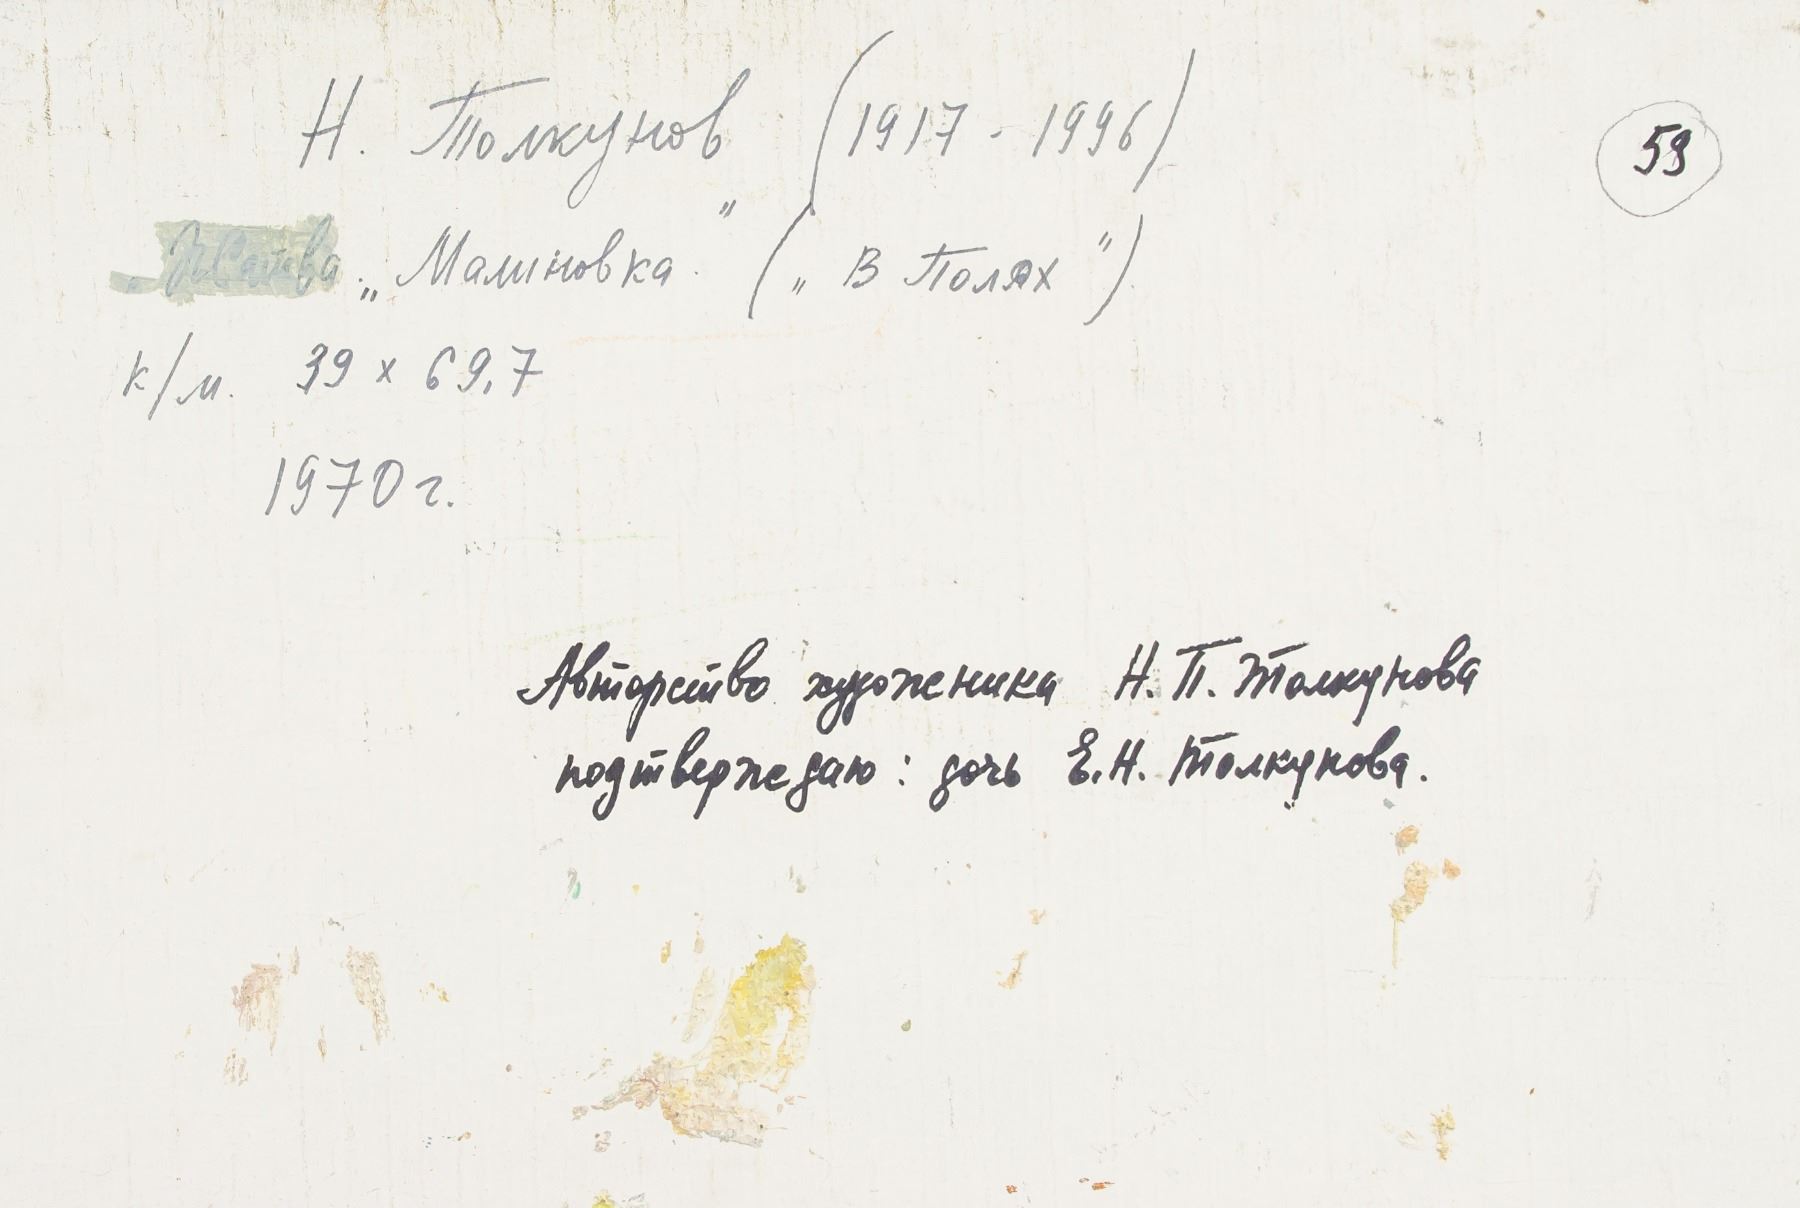 Н. Толкунов (1917 - 1996)
59
„Жатва „Малиновка" („В Полях")
к/м. 39 х 69,7
1970 г.
Авторство художника Н. П. Толкунова
подтверждаю: дочь Е.Н. Толкунова.